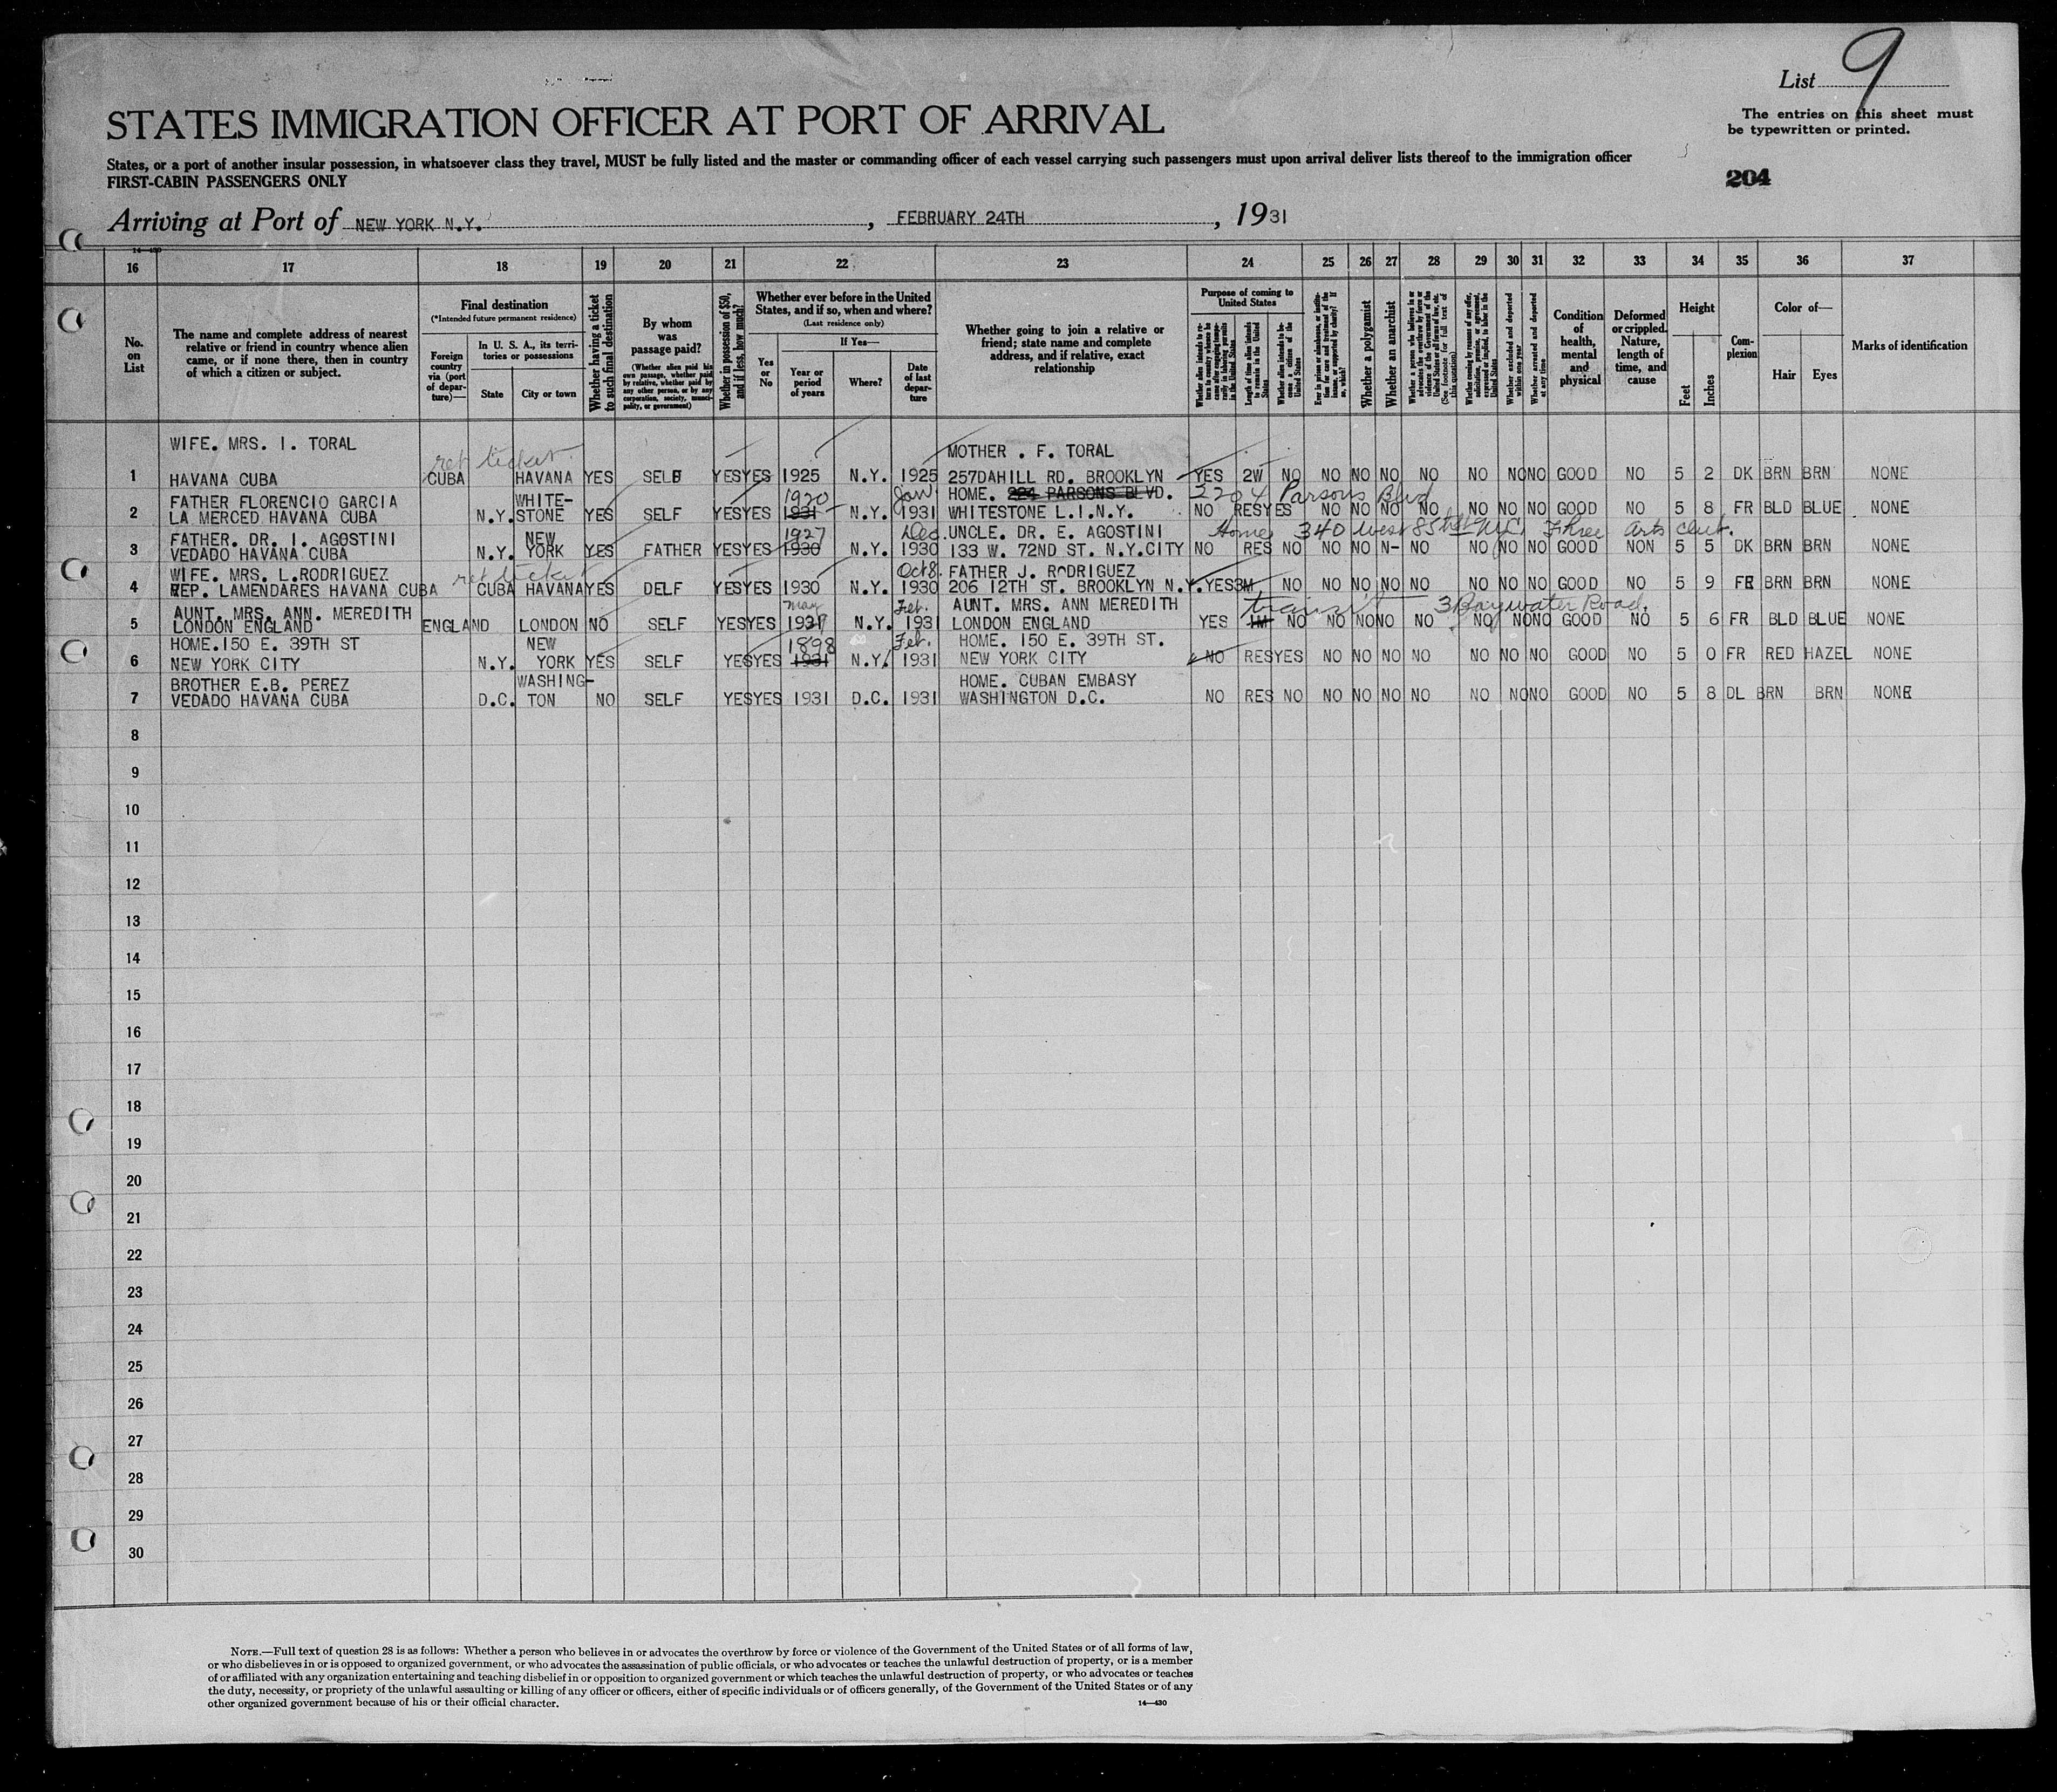 List 9
STATES IMMIGRATION OFFICER AT PORT OF ARRIVAL
The entries on this sheet must
be typewritten or printed.
States, or a port of another insular possession, in whatsoever class they travel, MUST be fully listed and the master or commanding officer of each vessel carrying such passengers must upon arrival deliver lists thereof to the immigration officer
FIRST-CABIN PASSENGERS ONLY
204
Arriving at Port of NEW YORK N.Y. , FEBRUARY 24TH , 1931
14—430
16 17 18 19 20 21 22 23 24 25 26 27 28 29 30 31 32 33 34 35 36 37
No. on List
The name and complete address of nearest relative or friend in country whence alien came, or if none there, then in country of which a citizen or subject.
Final destination
(*Intended future permanent residence)
Foreign country via (port of departure)—
In U. S. A., its territories or possessions
State
City or town
Whether having a ticket to such final destination
By whom was passage paid?
(Whether alien paid his own passage, whether paid by relative, whether paid by any other person, or by any corporation, society, municipality, or government)
Whether in possession of $50, and if less, how much?
Whether ever before in the United States, and if so, when and where?
(Last residence only)
Yes or No
If Yes—
Year or period of years
Where?
Date of last departure
Whether going to join a relative or friend; state name and complete address, and if relative, exact relationship
Purpose of coming to United States
Whether a polygamist
Whether an anarchist
Whether excluded and deported within one year
Whether arrested and deported at any time
Condition of health, mental and physical
Deformed or crippled. Nature, length of time, and cause
Height
Feet
Inches
Complexion
Color of—
Hair
Eyes
Marks of identification
WIFE. MRS. I. TORAL MOTHER . F. TORAL
ret ticket
1 HAVANA CUBA CUBA HAVANA YES SELF YES YES 1925 N.Y. 1925 257DAHILL RD. BROOKLYN YES 2W NO NO NO NO NO NO NO NO GOOD NO 5 2 DK BRN BRN NONE
FATHER FLORENCIO GARCIA WHITE- 1920 Jan HOME. 224 PARSONS BLVD. 2204 Parsons Blvd
2 LA MERCED HAVANA CUBA N.Y. STONE YES SELF YES YES 1931 N.Y. 1931 WHITESTONE L.I.N.Y. NO RES YES NO NO NO NO NO NO NO GOOD NO 5 8 FR BLD BLUE NONE
FATHER. DR. I. AGOSTINI NEW 1927 Dec. UNCLE. DR. E. AGOSTINI Home 340 West 85th St NYC Three Arts Club.
3 VEDADO HAVANA CUBA N.Y. YORK YES FATHER YES YES 1930 N.Y. 1930 133 W. 72ND ST. N.Y.CITY NO RES NO NO NO N- NO NO NO NO GOOD NON 5 5 DK BRN BRN NONE
WIFE. MRS. L.RODRIGUEZ ret ticket Oct 8. FATHER J. RODRIGUEZ
4 REP. LAMENDARES HAVANA CUBA CUBA HAVANA YES DELF YES YES 1930 N.Y. 1930 206 12TH ST. BROOKLYN N.Y. YES 3M NO NO NO NO NO NO NO NO GOOD NO 5 9 FR BRN BRN NONE
AUNT. MRS. ANN. MEREDITH may Feb. AUNT. MRS. ANN MEREDITH transit 3 Bayswater Road.
5 LONDON ENGLAND ENGLAND LONDON NO SELF YES YES 1927 N.Y. 1931 LONDON ENGLAND YES 1M NO NO NO NO NO NO NO NO GOOD NO 5 6 FR BLD BLUE NONE
HOME.150 E. 39TH ST NEW 1898 Feb. HOME. 150 E. 39TH ST.
6 NEW YORK CITY N.Y. YORK YES SELF YES YES 1931 N.Y. 1931 NEW YORK CITY NO RES YES NO NO NO NO NO NO NO GOOD NO 5 0 FR RED HAZEL NONE
BROTHER E.B. PEREZ WASHING- HOME. CUBAN EMBASY
7 VEDADO HAVANA CUBA D.C. TON NO SELF YES YES 1931 D.C. 1931 WASHINGTON D.C. NO RES NO NO NO NO NO NO NO NO GOOD NO 5 8 DL BRN BRN NONE
8
9
10
11
12
13
14
15
16
17
18
19
20
21
22
23
24
25
26
27
28
29
30
NOTE.—Full text of question 28 is as follows: Whether a person who believes in or advocates the overthrow by force or violence of the Government of the United States or of all forms of law,
or who disbelieves in or is opposed to organized government, or who advocates the assassination of public officials, or who advocates or teaches the unlawful destruction of property, or is a member
of or affiliated with any organization entertaining and teaching disbelief in or opposition to organized government or which teaches the unlawful destruction of property, or who advocates or teaches
the duty, necessity, or propriety of the unlawful assaulting or killing of any officer or officers, either of specific individuals or of officers generally, of the Government of the United States or of any
other organized government because of his or their official character.
14—430